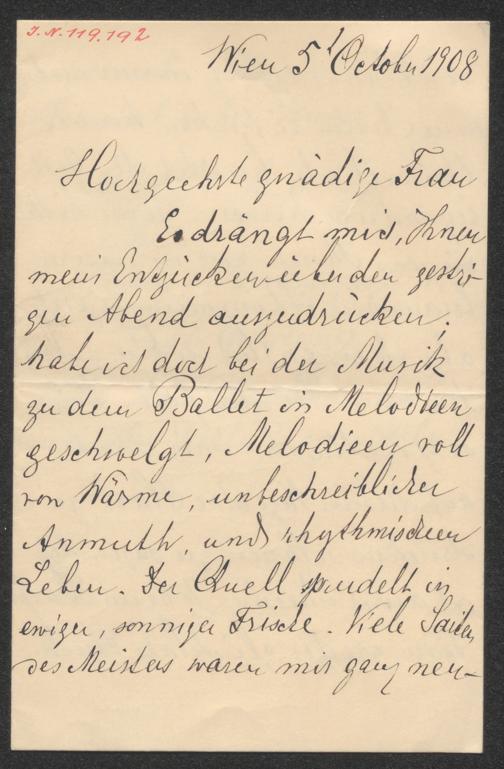 J. N. 119.192
Wien 5' October 1908
Hochgeehrte gnädige Frau
Es drängt mich, Ihnen
mein Entzücken über den gestri-
gen Abend auszudrücken;
habe ich doch bei der Musik
zu dem Ballet in Melodieen
geschwelgt, Melodieen voll
von Wärme, unbeschreiblicher
Anmuth, und rhythmischem
Leben. Der Quell sprudelt in
ewiger, sonniger Frische. Viele Saiten
des Meisters waren mir ganz neu-